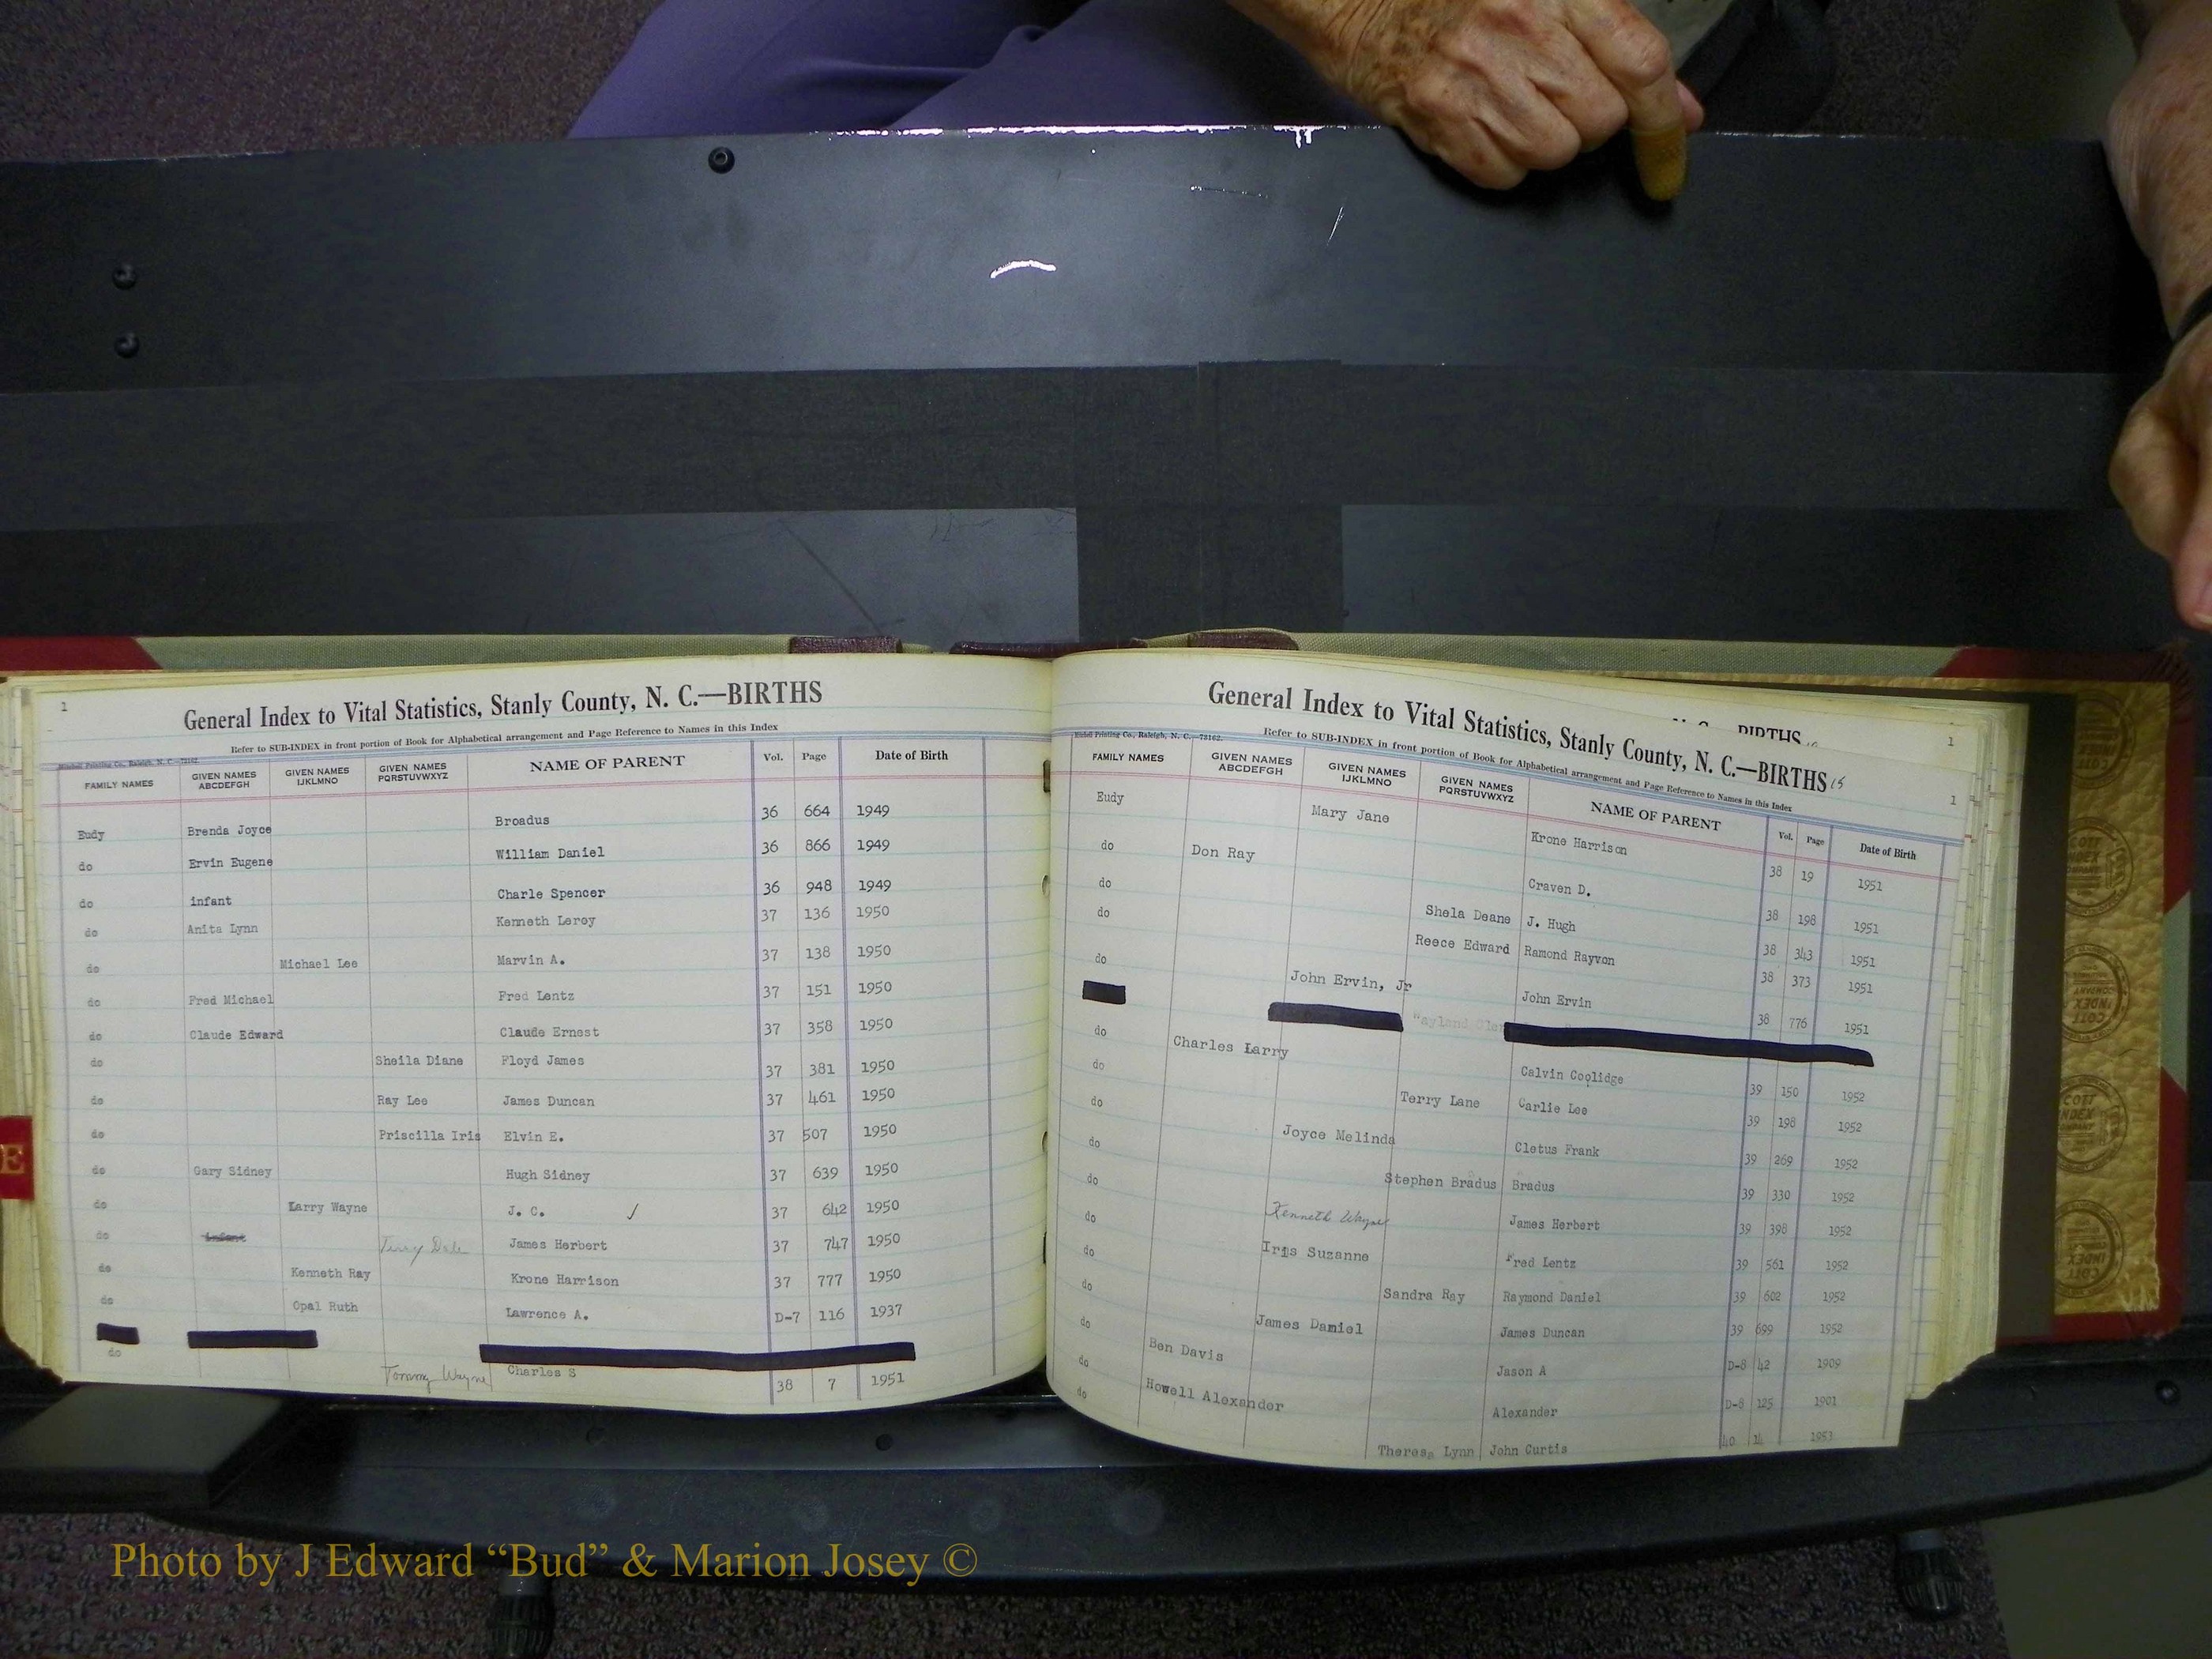 1
General Index to Vital Statistics, Stanly County, N. C.—BIRTHS
Refer to SUB-INDEX in front portion of Book for Alphabetical arrangement and Page Reference to Names in this Index
FAMILY NAMES GIVEN NAMES ABCDEFGH GIVEN NAMES IJKLMNO GIVEN NAMES PQRSTUVWXYZ NAME OF PARENT Vol. Page Date of Birth
Eudy Brenda Joyce Broadus 36 664 1949
do Ervin Eugene William Daniel 36 866 1949
do infant Charle Spencer 36 948 1949
do Anita Lynn Kenneth Leroy 37 136 1950
do Michael Lee Marvin A. 37 138 1950
do Fred Michael Fred Lentz 37 151 1950
do Claude Edward Claude Ernest 37 358 1950
do Sheila Diane Floyd James 37 381 1950
do Ray Lee James Duncan 37 461 1950
do Priscilla Iris Elvin E. 37 507 1950
do Gary Sidney Hugh Sidney 37 639 1950
do Larry Wayne J. C. ✓ 37 642 1950
do infant Terry Dale James Herbert 37 747 1950
do Kenneth Ray Krone Harrison 37 777 1950
do Opal Ruth Lawrence A. D-7 116 1937
do Tommy Wayne Charles S 38 7 1951
N. C.—BIRTHS
1
General Index to Vital Statistics, Stanly County, N. C.—BIRTHS 15
Mitchell Printing Co., Raleigh, N. C.—73162.
Refer to SUB-INDEX in front portion of Book for Alphabetical arrangement and Page Reference to Names in this Index
1
FAMILY NAMES GIVEN NAMES ABCDEFGH GIVEN NAMES IJKLMNO GIVEN NAMES PQRSTUVWXYZ NAME OF PARENT Vol. Page Date of Birth
Eudy Mary Jane Krone Harrison 38 19 1951
do Don Ray Craven D. 38 198 1951
do Shela Deane J. Hugh 38 343 1951
do Reece Edward Ramond Rayvon 38 373 1951
do John Ervin, Jr John Ervin 38 776 1951
do Charles Larry Calvin Coolidge 39 150 1952
do Terry Lane Carlie Lee 39 198 1952
do Joyce Melinda Cletus Frank 39 269 1952
do Stephen Bradus Bradus 39 330 1952
do Kenneth Wayne James Herbert 39 398 1952
do Iris Suzanne Fred Lentz 39 561 1952
do Sandra Ray Raymond Daniel 39 602 1952
do James Daniel James Duncan 39 699 1952
do Ben Davis Jason A D-8 42 1909
do Howell Alexander Alexander D-8 125 1901
do Theresa Lynn John Curtis 40 14 1953
E
Photo by J Edward “Bud” & Marion Josey ©